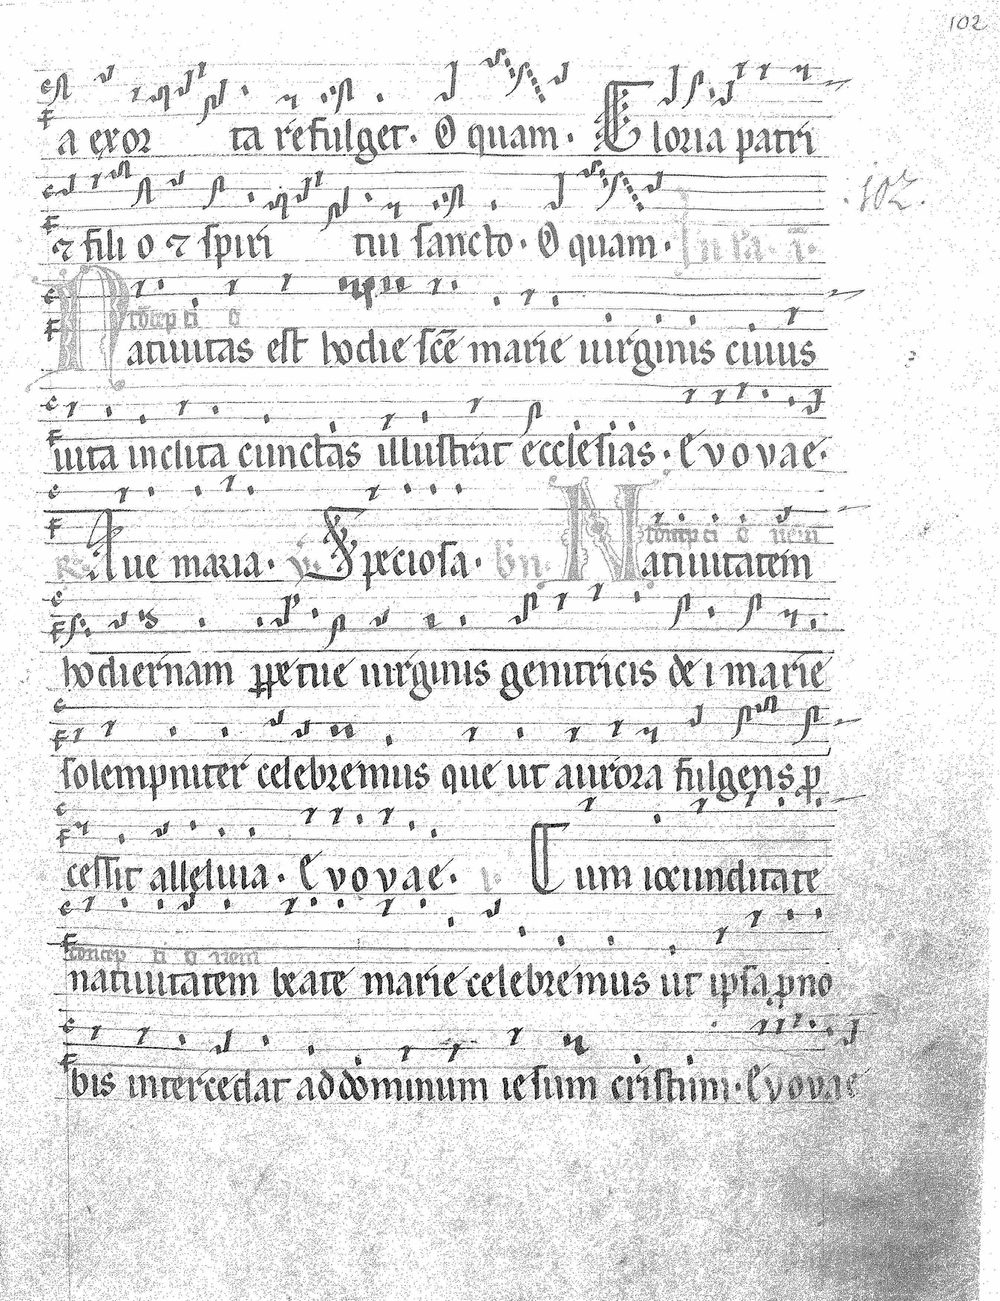 102
a exor ta refulget. O quam. Gloria patri
⁊ fili o ⁊ spiri tui sancto. O quam. In ła. ā.
.102.
concepti o
Natiuitas est hodie scē marie uirginis cuius
uita inclita cunctas illustrat ecclesias. Evovae.
concepti o nem
R. Aue maria. V. Speciosa. bñ. Natiuitatem
hodiernam ꝑpetue uirginis genitricis dei marie
solempniter celebremus que ut aurora fulgens ꝓ
cessit alleluia. Evovae. Cum iocunditate
concep ti o nem
natiuitatem beate marie celebremus ut ipsa ꝓ no
bis intercedat ad dominum iesum cristum. Evovae